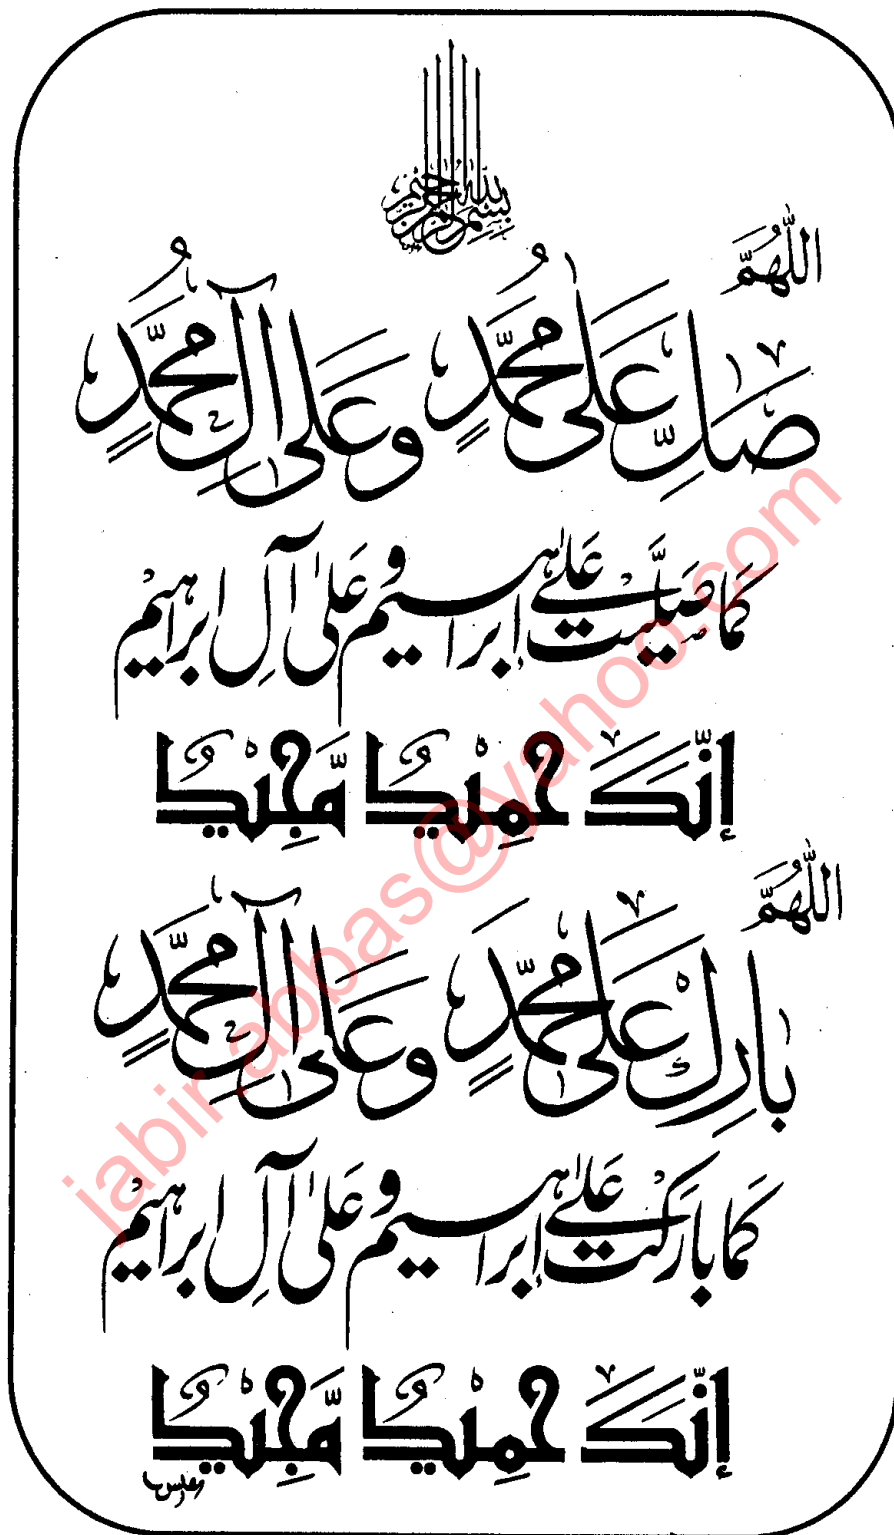 بسم الله الرحمن الرحيم
اللَّهُمَّ
صَلِّ عَلَى مُحَمَّدٍ وَعَلَى آلِ مُحَمَّدٍ
كَمَا صَلَّيْتَ عَلَىٰ إِبْرَاهِيْمَ وَعَلَىٰ آلِ إِبْرَاهِيْمَ
إِنَّكَ حَمِيْدٌ مَّجِيْدٌ
اللَّهُمَّ
بَارِكْ عَلَى مُحَمَّدٍ وَعَلَى آلِ مُحَمَّدٍ
كَمَا بَارَكْتَ عَلَىٰ إِبْرَاهِيْمَ وَعَلَىٰ آلِ إِبْرَاهِيْمَ
إِنَّكَ حَمِيْدٌ مَّجِيْدٌ
jabir.abbas@yahoo.com